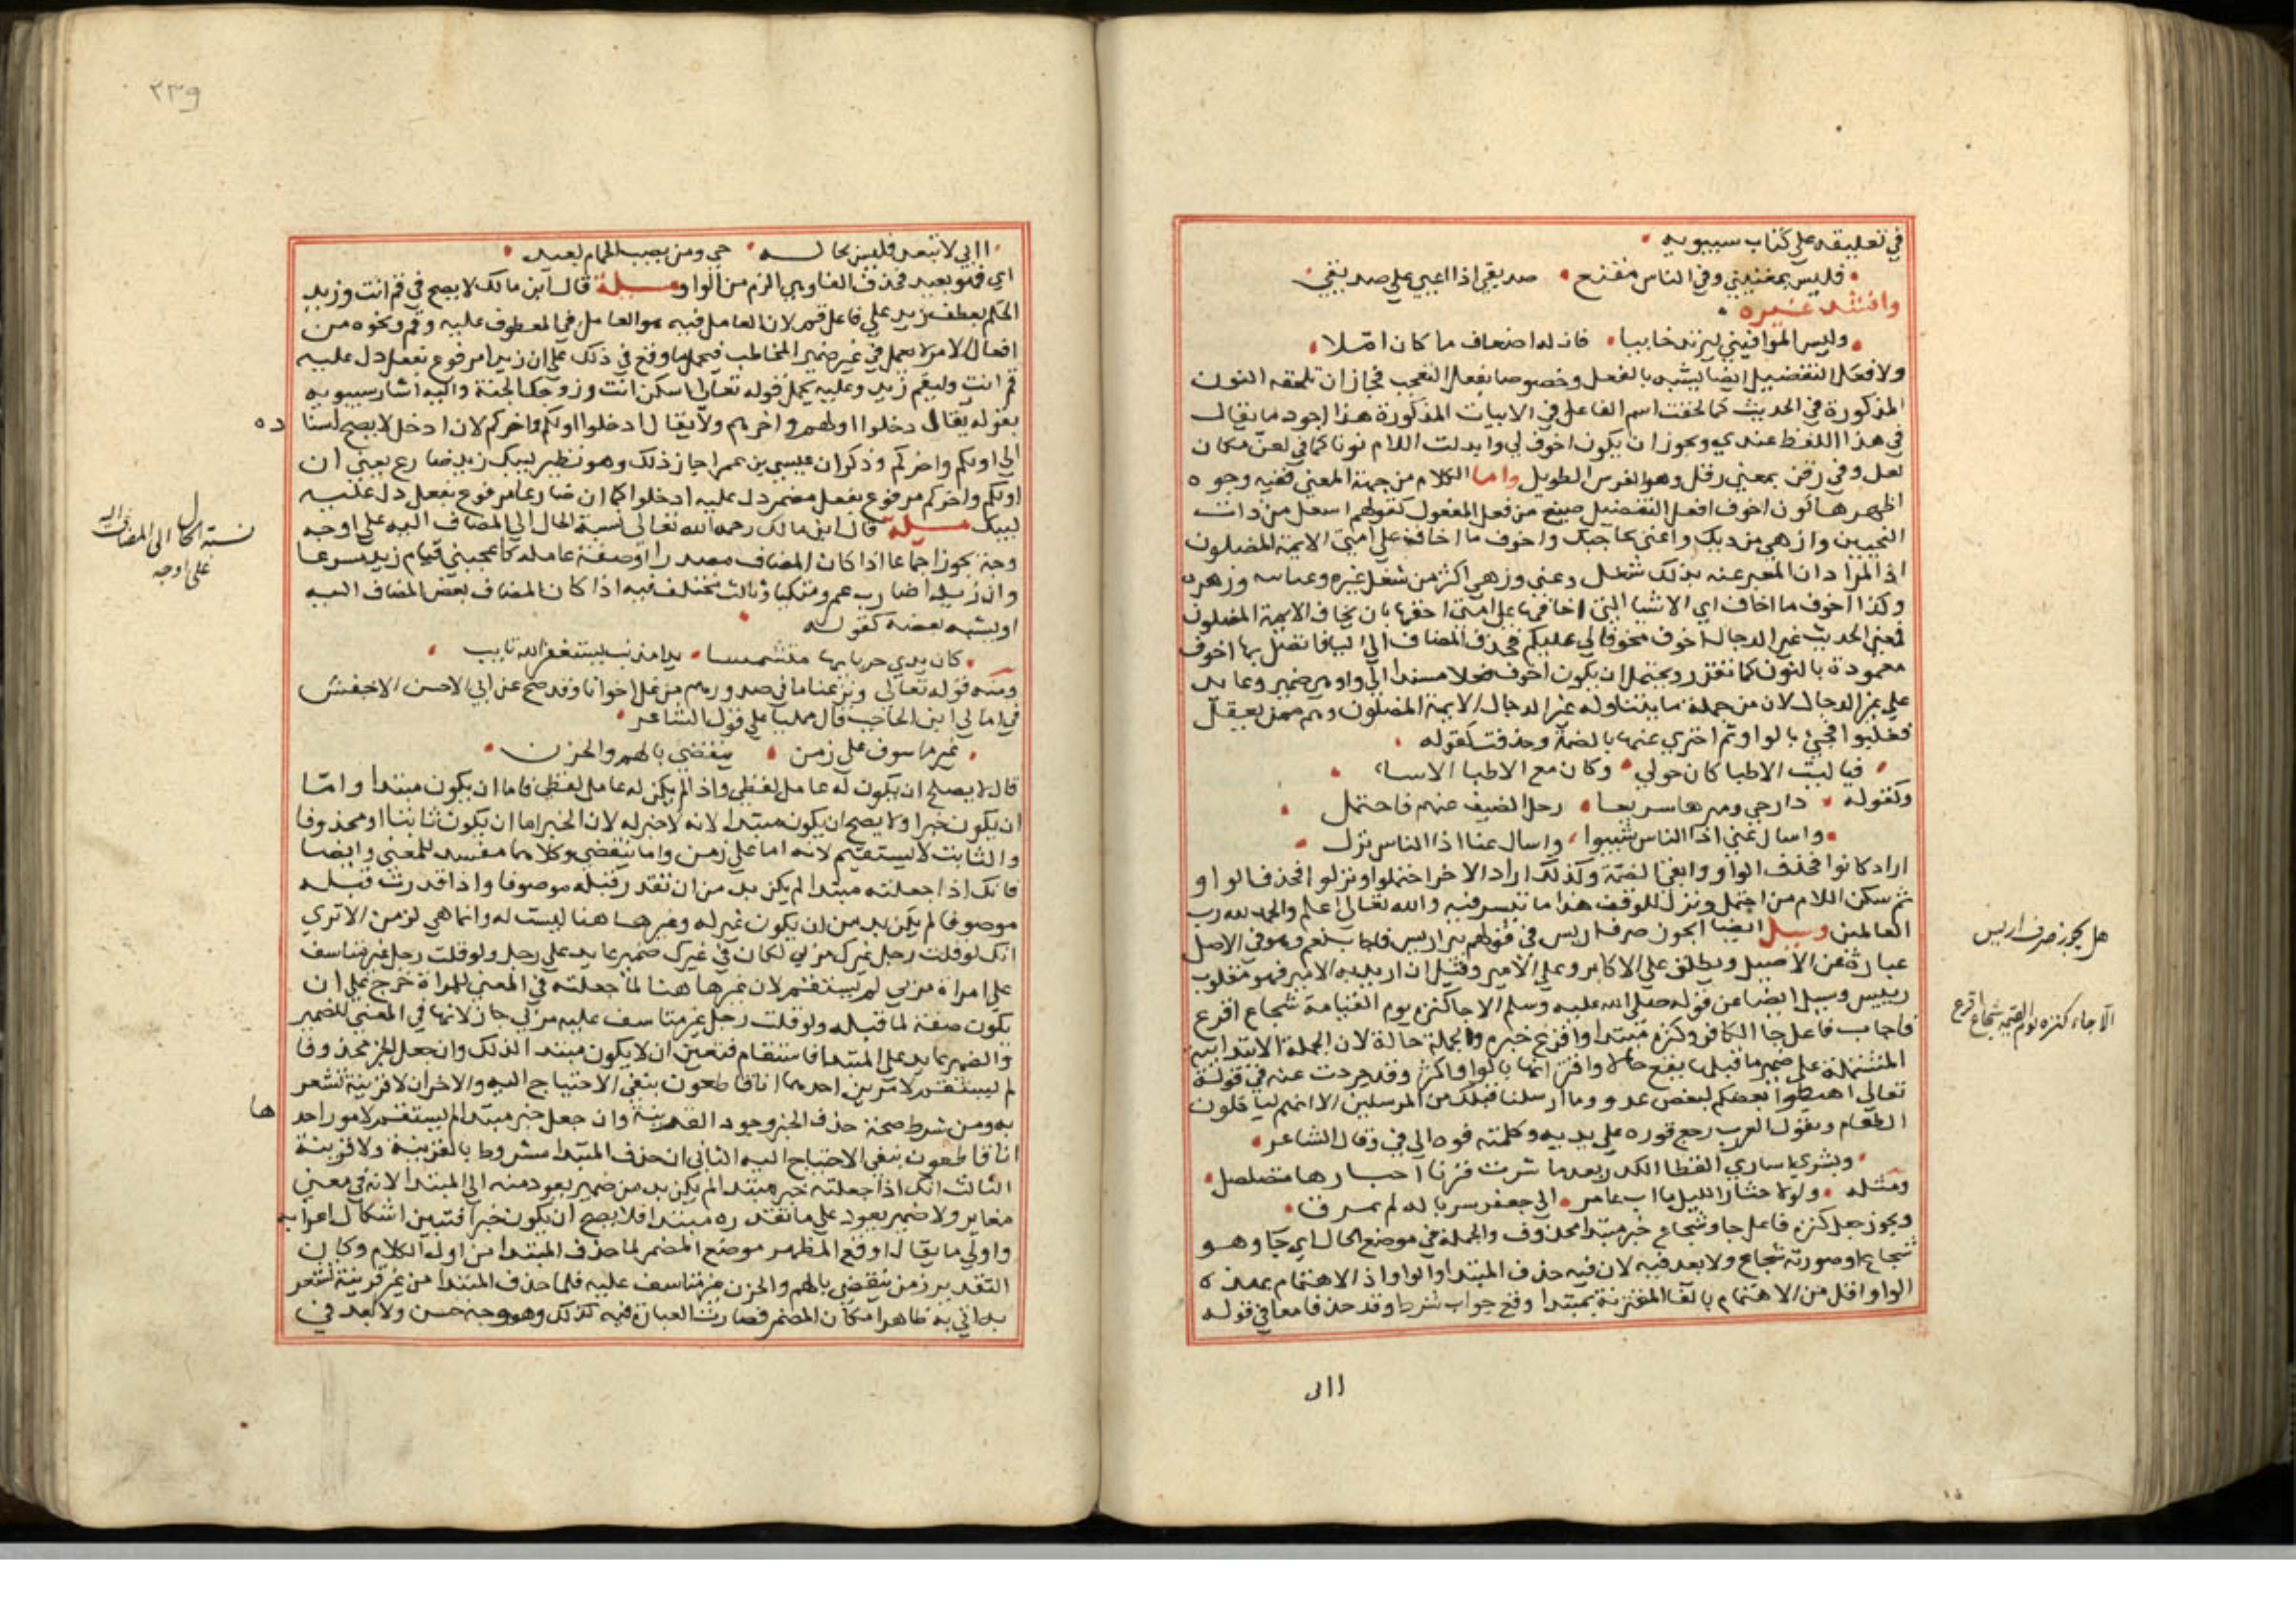 في تعليقه على كتاب سيبويه
فليس بمغنيني وفي الناس مقنع صديقي اذا اعيي علي صديقي
وانشد غيره
وليس الموافيني ليرتد خايبا فان له اضعاف ما كان املا
ولا فعل التفضيل ايضا يشبه بالفعل وخصوصا بفعل التعجب فجاز ان تلحقه النون
المذكورة في الحديث كما لحقت اسم الفاعل في الابيات المذكورة هذا اجود ما يقال
في هذا اللفظ عندي ويجوز ان يكون اخوف لي وابدلت اللام نونا كما في لعن مكان
لعل وفي رفن بمعني رفل وهو الفرس الطويل واما الكلام من جهة المعني ففيه وجوه
اظهرها كون اخوف افعل التفضيل صيغ من فعل المفعول كقولهم اشغل من ذات
النحيين وازهي من ديك واعني بحاجتك واخوف ما اخاف علي امتي الايمة المضلون
اذ المراد ان المعبر عنه بذلك شغل وعني وزهي اكثر من شغل غيره وعنايه وزهوه
وكذا اخوف ما اخاف اي الاشيا التي اخافها علي امتي احقها بان يخاف الايمة المضلون
فمعني الحديث غير الدجال اخوف مخوفاتي عليكم فحذف المضاف الي اليا فاتصل بها اخوف
معمودة بالنون كما تقرر ويحتمل ان يكون اخوف فعلا مسندا الي واو هي ضمير وعايد
علي غير الدجال لان من جملة ما يتناوله غير الدجال الايمة المضلون وهم ممن يعقل
فغلبوا فجيء بالواو ثم اجتزي عنها بالضمة وحذفت كقوله
فيا ليت الاطبا كان حولي وكان مع الاطبا الاساء
وكقوله دارحي ومرها سريعا رحل الضيف عنهم فاحتمل
واسال عني اذا الناس شيبوا واسال عنا اذا الناس نزل
اراد كانوا فحذف الواو وابقي الضمة وكذلك اراد الاخر احتملوا ونزلوا فحذف الواو
ثم سكن اللام من احتمل ونزل للوقف هذا ما تيسر فيه والله تعالي اعلم والحمد لله رب
العالمين وسيل ايضا ايجوز صرف اريس في قولهم بير اريس فاجاب بنعم وهو في الاصل
عبارة عن الاصيل ويطلق علي الاكار وعلي الامير وقيل ان اريد به الامير فهو مقلوب
رييس وسيل ايضا عن قوله صلي الله عليه وسلم الا جا كنزه يوم القيامة شجاع اقرع
فاجاب فاعل جا الكافر وكنزه مبتدا واقرع خبره والجملة حالة لان الجملة الابتداييه
المشتملة علي ضمير ما قبلها يقع حالا واقترانها بالواو اكثر وقد جردت عنه في قوله
تعالي اهبطوا بعضكم لبعض عدو وما ارسلنا قبلك من المرسلين الا انهم لياكلون
الطعام ويقول العرب رجع قوره علي يديه وكلمته فوه الي في وقال الشاعر
ويشري اساري القطا الكدر بعدما شرت قربا احبارها متصلصل
ومثله ولولا حثار الليل ما اب عامر الي جعفر سرباله لم يمرق
ويجوز جعل كنزه فاعل جا وشجاع خبر مبتدا محذوف والجملة في موضع الحال اي جا وهو
شجاع او صورته شجاع ولا بعد فيه لان فيه حذف المبتدا والواو اذ الاهتمام بهذه
الواو اقل من الاهتمام بالفا المقترنة بمبتدا وقع جواب شرط وقد حذفا معا في قوله
االي
هل يجوز صرف اريس
الا جاء كنزه يوم القيمة شجاع اقرع
٢٣٩
ااالي لا تبعد فليس بخالد حي ومن يصب الحمام بعيد
اي فهو بعيد فحذف الفا وهي الزم من الواو مسيلة قال ابن مالك لا يصح في قم انت وزيد
الحكم بعطف زيد علي فاعل قم لان العامل فيه هو العامل في المعطوف عليه وقم ونحوه من
افعال الامر لا يعمل في غير ضمير المخاطب فيحمل ما وقع في ذلك علي ان زيدا مرفوع بفعل دل عليه
قم انت وليقم زيد وعليه يحمل قوله تعالي اسكن انت وزوجك الجنة واليه اشار سيبويه
بقوله يقال دخلوا اولهم واخرهم ولا يقال ادخلوا اولكم واخركم لان ادخل لا يصح اسنا
ده
الي اولكم واخركم وذكر ان عيسي بن عمر اجاز ذلك وهو نظير ليبك زيد ضارع يعني ان
اولكم واخركم مرفوع بفعل مضمر دل عليه ادخلوا كما ان ضارعا مرفوع بفعل دل عليه
ليبك مسيلة قال ابن مالك رحمه الله تعالي نسبة الحال الي المضاف اليه علي اوجه
وجه يجوز اجماعا اذا كان المضاف مصدرا او صفة عاملة كاعجبني قيام زيد مسرعا
وان زيدا ضارب عمر ومتكيا وثالث مختلف فيه اذا كان المضاف بعض المضاف اليه
او يشبه بعضه كقوله
كان يدي حربايها متشمسا يدا مذنب يستغفر الله تايب
ومنه قوله تعالي ونزعنا ما في صدورهم من غل اخوانا وقد صح عن ابي الاحسن الاخفش
في امالي ابن الحاجب قال مملياً علي قول الشاعر
غير ماسوف علي زمن ينقضي بالهم والحزن
قال لا يصلح ان يكون له عامل لفظي واذ لم يكن له عامل لفظي فاما ان يكون مبتدا واما
ان يكون خبرا ولا يصح ان يكون مبتدا لانه لا خبر له لان الخبر اما ان يكون ثابتا او محذوفا
والثابت لا يستقيم لانه اما علي زمن واما ينقضي وكلاهما مفسد للمعني وايضا
فانك اذا جعلته مبتدا لم يكن بد من ان تقدر قبله موصوفا واذا قدرت قبله
موصوفا لم يكن بد من ان يكون غير له وغير ها هنا ليست له وانما هي لزمن الا تري
انك لو قلت رجل غيرك مر بي لكان في غيرك ضمير عايد علي رجل ولو قلت رجل غير متاسف
علي امراة مر بي لم يستقم لان غير ها هنا لما جعلته في المعني للمراة خرج علي ان
يكون صفة لما قبله ولو قلت رجل غير متاسف عليه مر بي جاز لانها في المعني للضمير
والضمير عايد علي المبتدا فاستقام فتعين ان لا يكون مبتدا لذلك وان جعل الخبر محذوفا
لم يستقم لامرين احدهما انا قاطعون بنفي الاحتياج اليه والاخر ان لا قرينة تشعر
به ومن شرط صحة حذف الخبر وجود القرينة وان جعل خبر مبتدا لم يستقم لامور احد
ها
انا قاطعون بنفي الاحتياج اليه الثاني ان حذف المبتدا مشروط بالقرينة ولا قرينة
الثالث انك اذا جعلته خبر مبتدا لم يكن بد من ضمير يعود منه الي المبتدا لانه في معني
مغاير ولا ضمير يعود علي ما تقدره مبتدا فلا يصح ان يكون خبرا فتبين اشكال اعرابه
واولي ما يقال اوقع المظهر موضع المضمر لما حذف المبتدا من اول الكلام وكان
التقدير زمن ينقضي بالهم والحزن غير متاسف عليه فلما حذف المبتدا من غير قرينة تشعر
به اتي به ظاهرا مكان المضمر فصارت العبارة فيه كذلك وهو وجه حسن ولا بعد في
نسبة الحال الى المضاف اليه
على اوجه